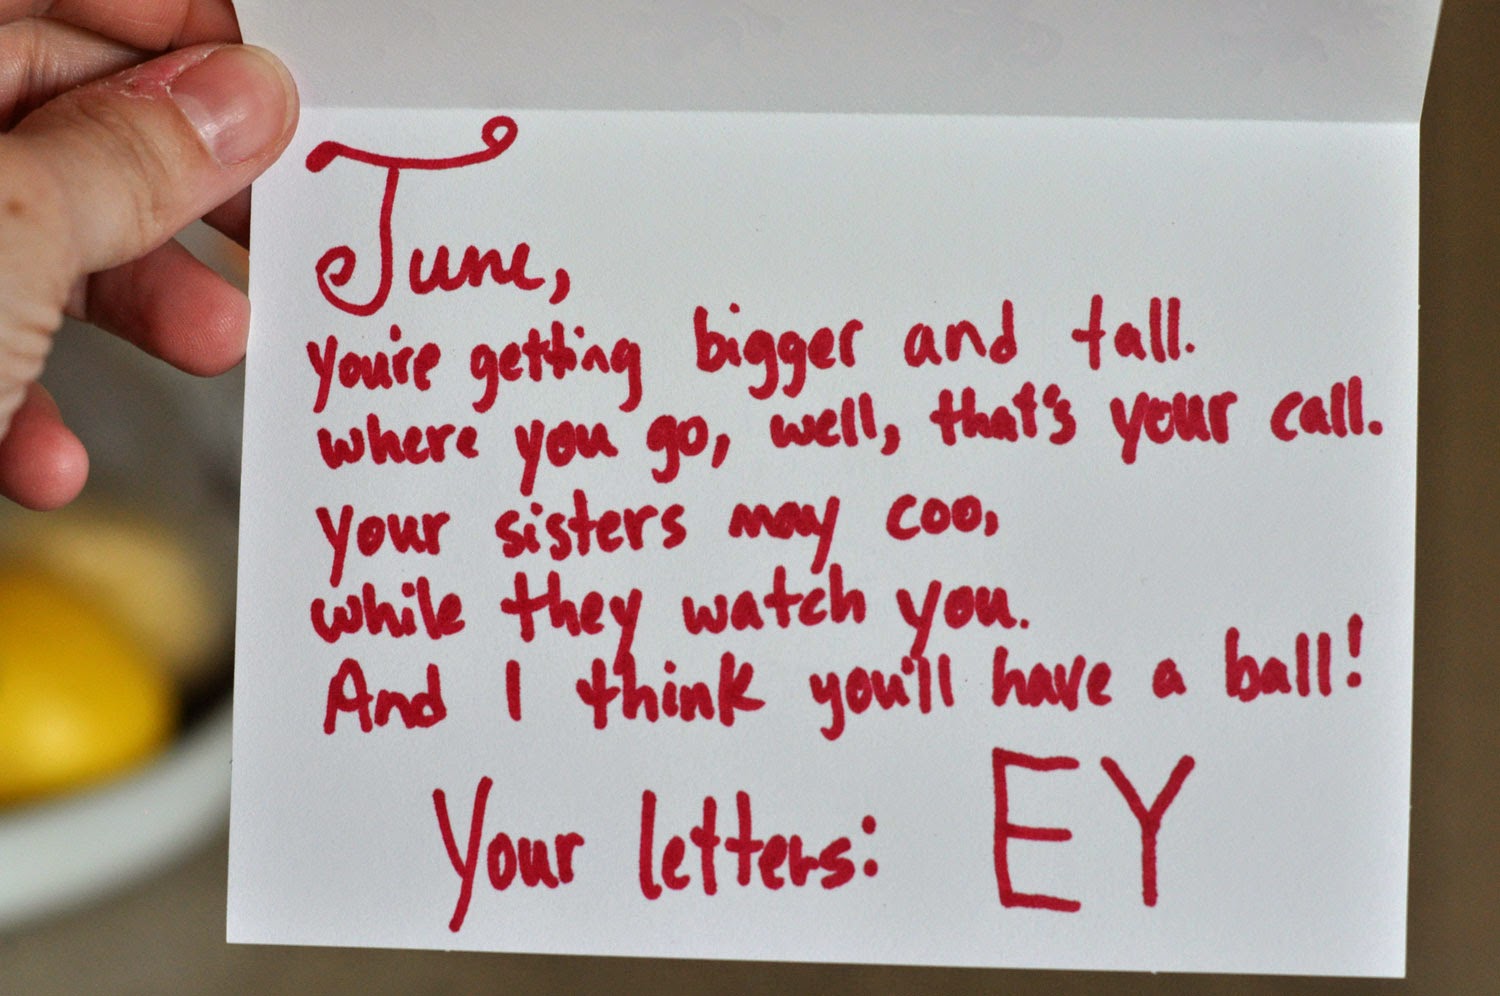 June,
You're getting bigger and tall.
where you go, well, that's your call.
Your sisters may coo,
while they watch you.
And I think you'll have a ball!
Your letters: EY